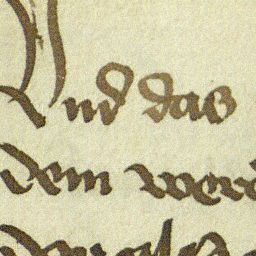 Vnd das
dem werd